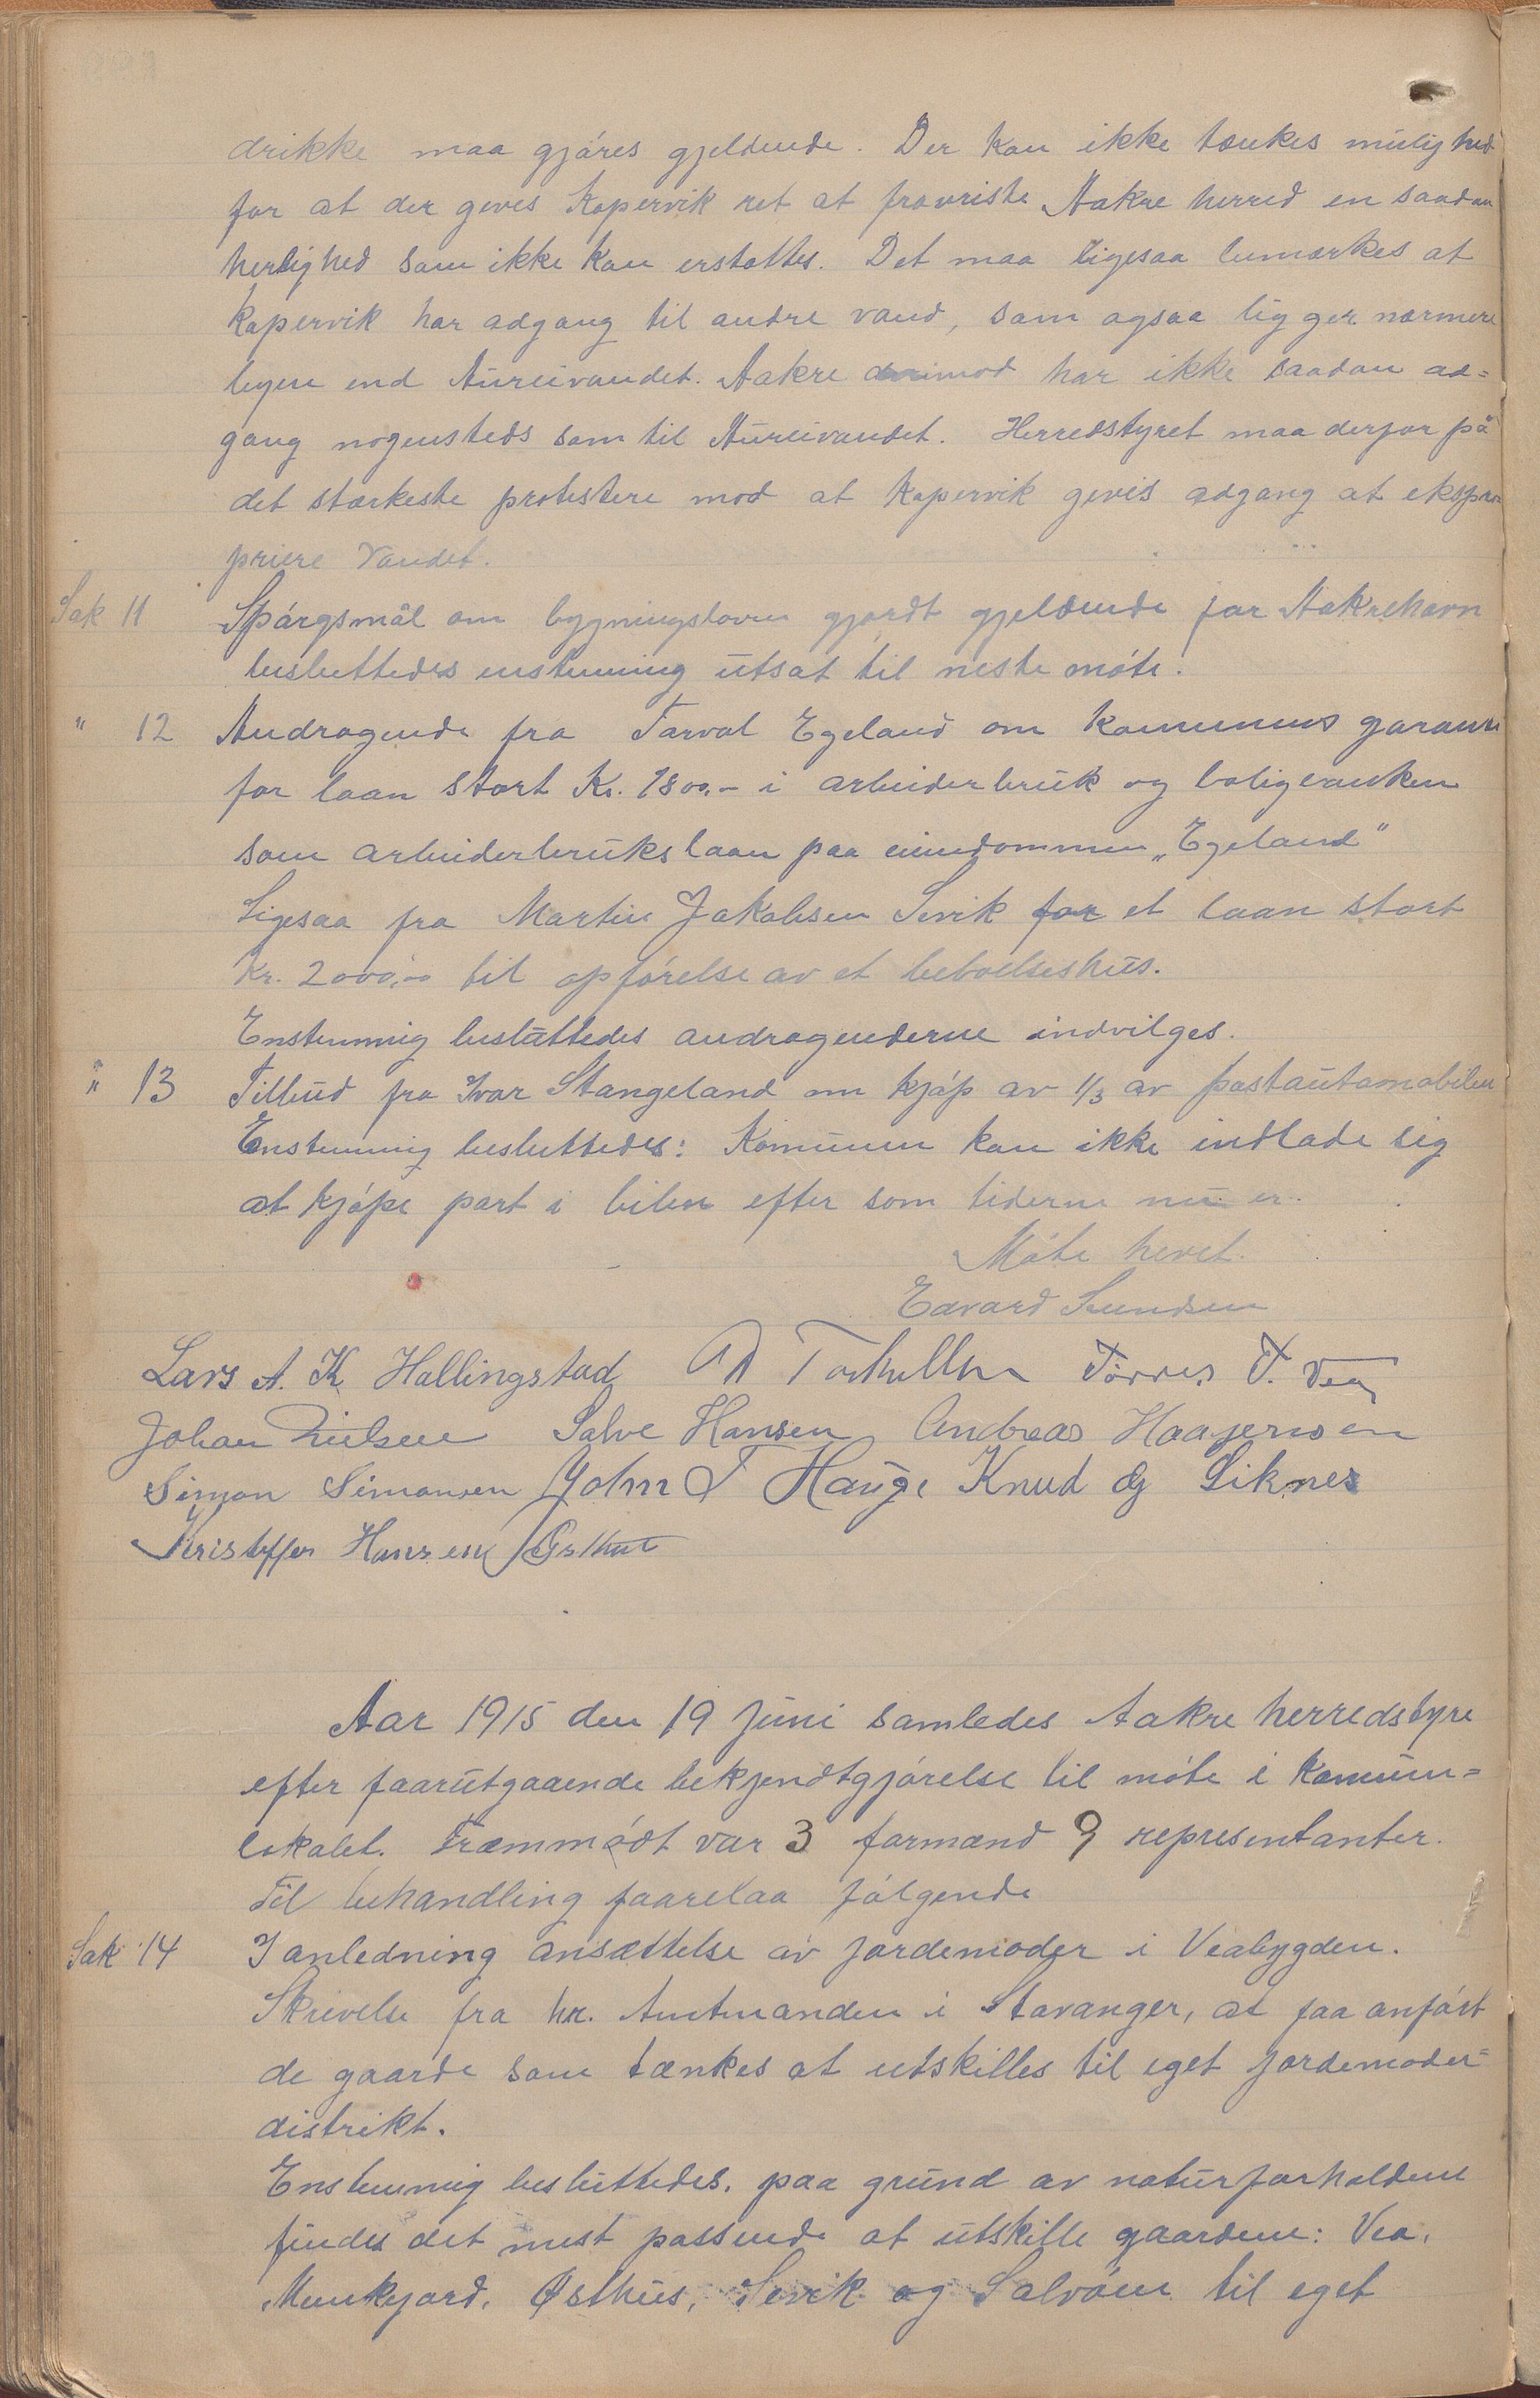 drikke maa gjøres gjeldende. Der kan ikke tænkes mulighed
for at der geves Kopervik ret at fravriste Aakre herred en saadan
herlighed som ikke kan erstattes. Det maa ligesaa bemærkes at
Kopervik har adgang til andre vand, som ogsaa ligger nærmere
byen end Aureivandet. Aakre derimod har ikke saadan ad=
gang nogensteds som til Aureivandet. Herredstyret maa derfor på
det stærkeste protestere mod at Kopervik gevis adgang at ekspro=
priere Vandet.
Sak 11 Spørgsmål om bygningsloven gjordt gjeldende for Aakrehavn
besluttedes enstemmig utsat til neste møte.
" 12 Andragende fra Torval Egeland om kommunens garanti
for laan stort Kr. 1800.- i arbeiderbruk og boligbanken
som arbeiderbrukslaan paa eiendommen "Egeland"
Ligesaa fra Martin Jakobsen Sevik for et laan stort
Kr. 2000,- til opførelse av et beboelseshus.
Enstemmig besluttedes andragenderne indvilges.
" 13 Tilbud fra Ivar Stangeland om kjøp av 1/3 av postautomobilen
Enstemmig besluttedes: Komunen kan ikke indlade sig
at kjøpe part i bilen efter som tiderne nu er.
Møte hevet.
Edvard Sundsen
Lars A. K Hallingstad Torkellsen Tørres T. Vea
Johan Nielsen Salve Hansen Andreas Haagensen
Simon Simonsen John T Hauge Knud Liknes
Kristoffer Hansen Østhus
Aar 1915 den 19 Juni samledes Aakre herredstyre
efter faarutgaaende bekjendtgjørelse til møte i Komun=
lokalet. Fræmmødt var 3 formænd 9 representanter.
Til behandling faarelaa følgende
Sak 14 I anledning ansættelse av jordemoder i Veabygden.
Skrivelse fra hr. Amtmanden i Stavanger, at faa anført
de gaarde som tænkes at utskilles til eget jordemoder=
distrikt.
Enstemmig besluttedes. paa grund av naturforholdene
findes det mest passende at utskille gaardene: Vea,
Munkejord, Østhus, Sevik og Salvøen til eget